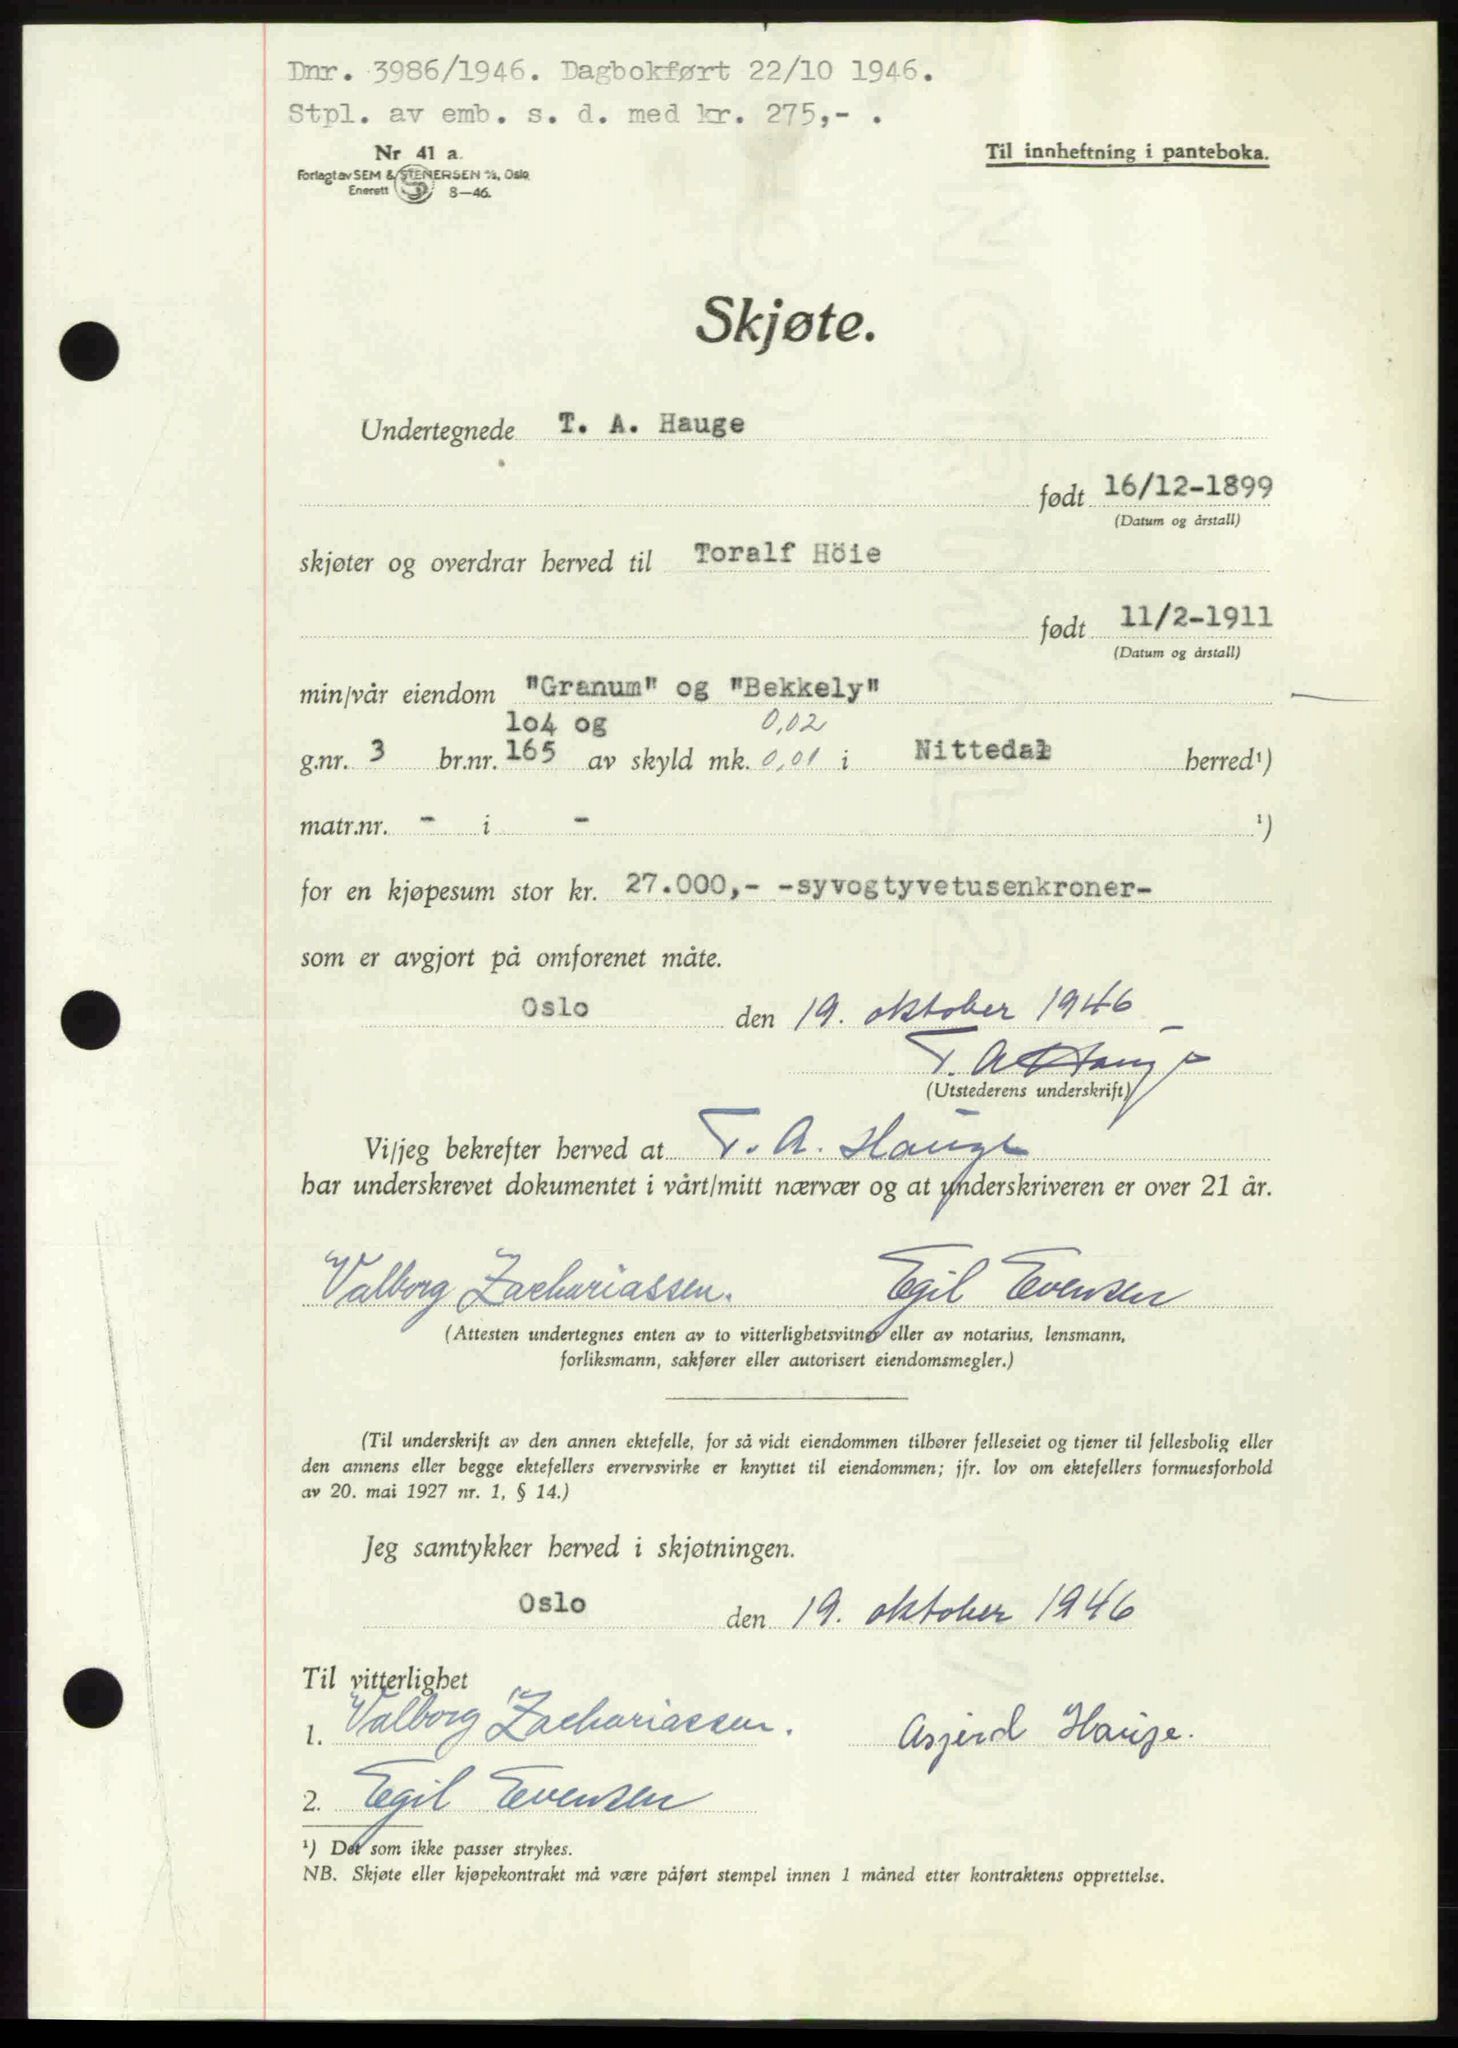 Dnr. 3986/1946. Dagbokført 22/10 1946.
Stpl. av emb. s. d. med kr. 275,- .
Nr 41 a.
Forlagt av SEM & STENERSEN A/S, Oslo
Enerett 8—46.
Til innheftning i panteboka.
Skjøte.
Undertegnede T. A. Hauge
født 16/12-1899
(Datum og årstall)
skjøter og overdrar herved til Toralf Höie
født 11/2-1911
(Datum og årstall)
min/vår eiendom "Granum" og "Bekkely"
lo4 og 0,02
g.nr. 3 br.nr. 165 av skyld mk. 0,01 i Nittedal herred¹)
matr.nr. - i - ¹)
for en kjøpesum stor kr. 27.000,- -syvogtyvetusenkroner-
som er avgjort på omforenet måte.
Oslo den 19. oktober 1946
T. A Hauge
(Utstederens underskrift)
Vi/jeg bekrefter herved at T. A. Hauge
har underskrevet dokumentet i vårt/mitt nærvær og at underskriveren er over 21 år.
Valborg Zachariassen. Egil Evensen
(Attesten undertegnes enten av to vitterlighetsvitner eller av notarius, lensmann,
forliksmann, sakfører eller autorisert eiendomsmegler.)
(Til underskrift av den annen ektefelle, for så vidt eiendommen tilhører felleseiet og tjener til fellesbolig eller
den annens eller begge ektefellers ervervsvirke er knyttet til eiendommen; jfr. lov om ektefellers formuesforhold
av 20. mai 1927 nr. 1, § 14.)
Jeg samtykker herved i skjøtningen.
Oslo den 19. oktober 1946
Til vitterlighet
1. Valborg Zachariassen. Asjerd Hauge.
2. Egil Evensen
¹) Det som ikke passer strykes.
NB. Skjøte eller kjøpekontrakt må være påført stempel innen 1 måned etter kontraktens opprettelse.